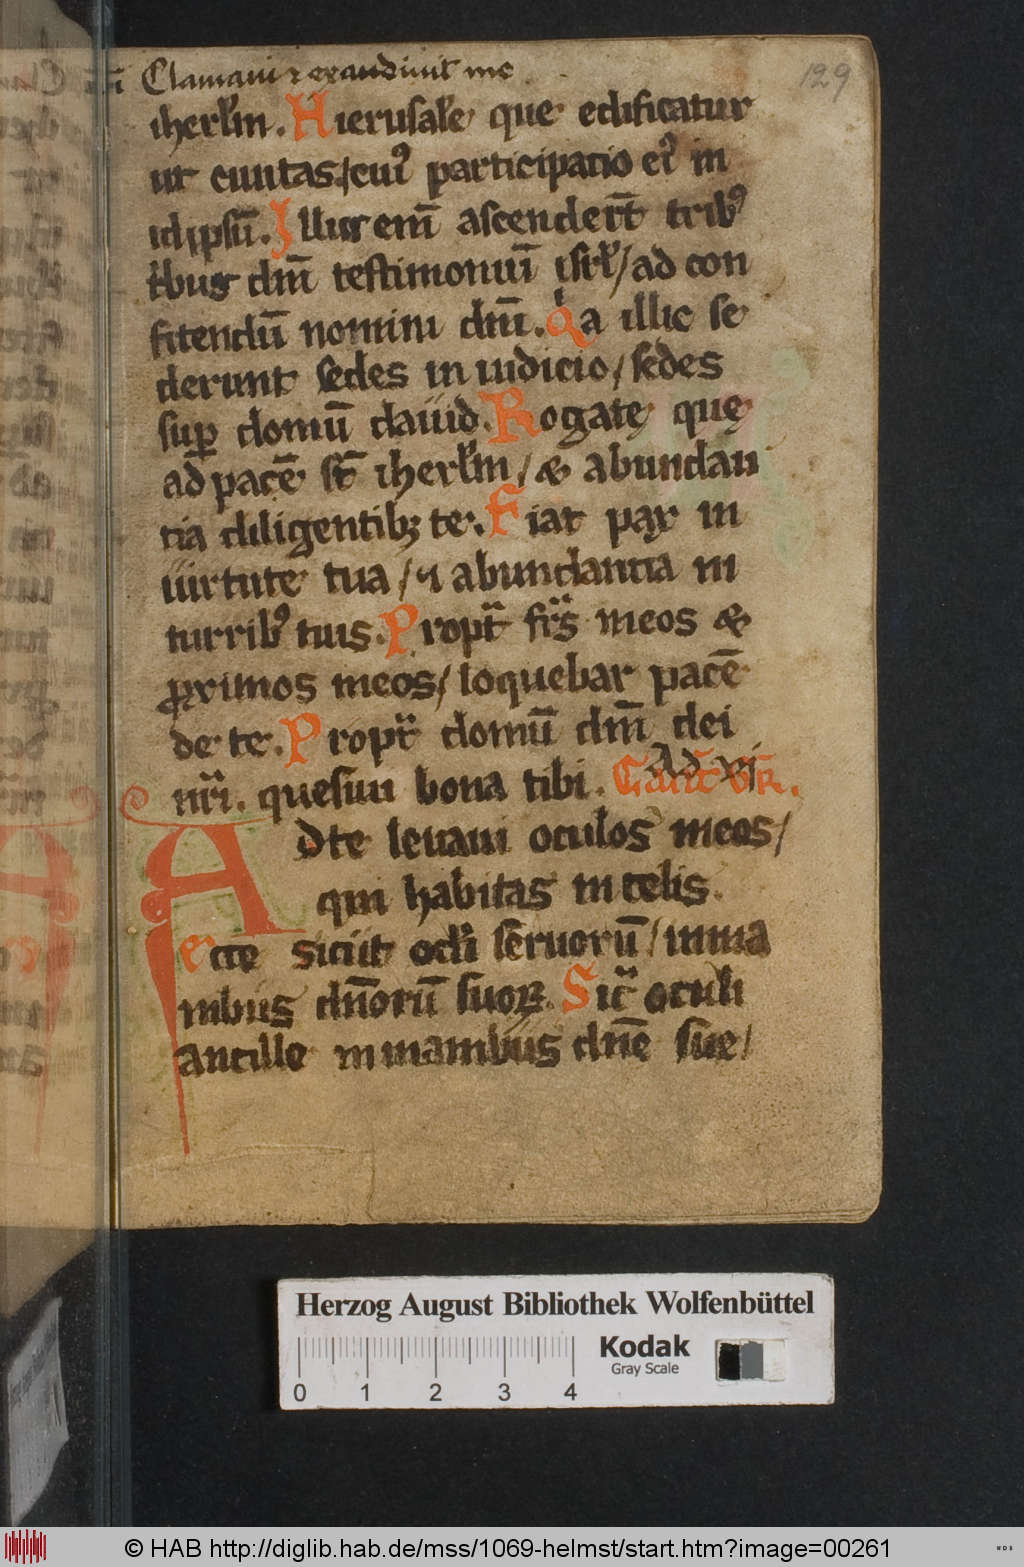 Clamaui ⁊ exaudiuit me
129
iherl'm. Hierusale que edificatur
ut ciuitas / cui9 participatio ei9 in
idipsū. Illuc eni̅ ascender̅t trib9
t'bus dn̅i testimoniū isrl' / ad con
fitendū nomini dn̅i. Qia illic se
derunt sedes in iudicio / sedes
sup̱ domū dauid. Rogate que
ad pacē st̅ iherl'm / & abundan
tia diligentibꝫ te. Fiat pax in
uirtute tua / ⁊ abundantia in
turrib9 tuis. Propt̅ fr̅s meos &
ꝓximos meos / loquebar pacē
de te. Propt̅ domū dn̅i dei
nr̅i. quesiui bona tibi. Cant̅ Gr̅.
Ad xi
Ad te leuaui oculos meos /
qui habitas in celis.
Ecce sicut oc'li seruorū / in ma
nibus dn̅orū suoꝝ. Sic̅ oculi
ancille in manibus dn̅e sue /
Herzog August Bibliothek Wolfenbüttel
Kodak
Gray Scale
0 1 2 3 4
© HAB http://diglib.hab.de/mss/1069-helmst/start.htm?image=00261